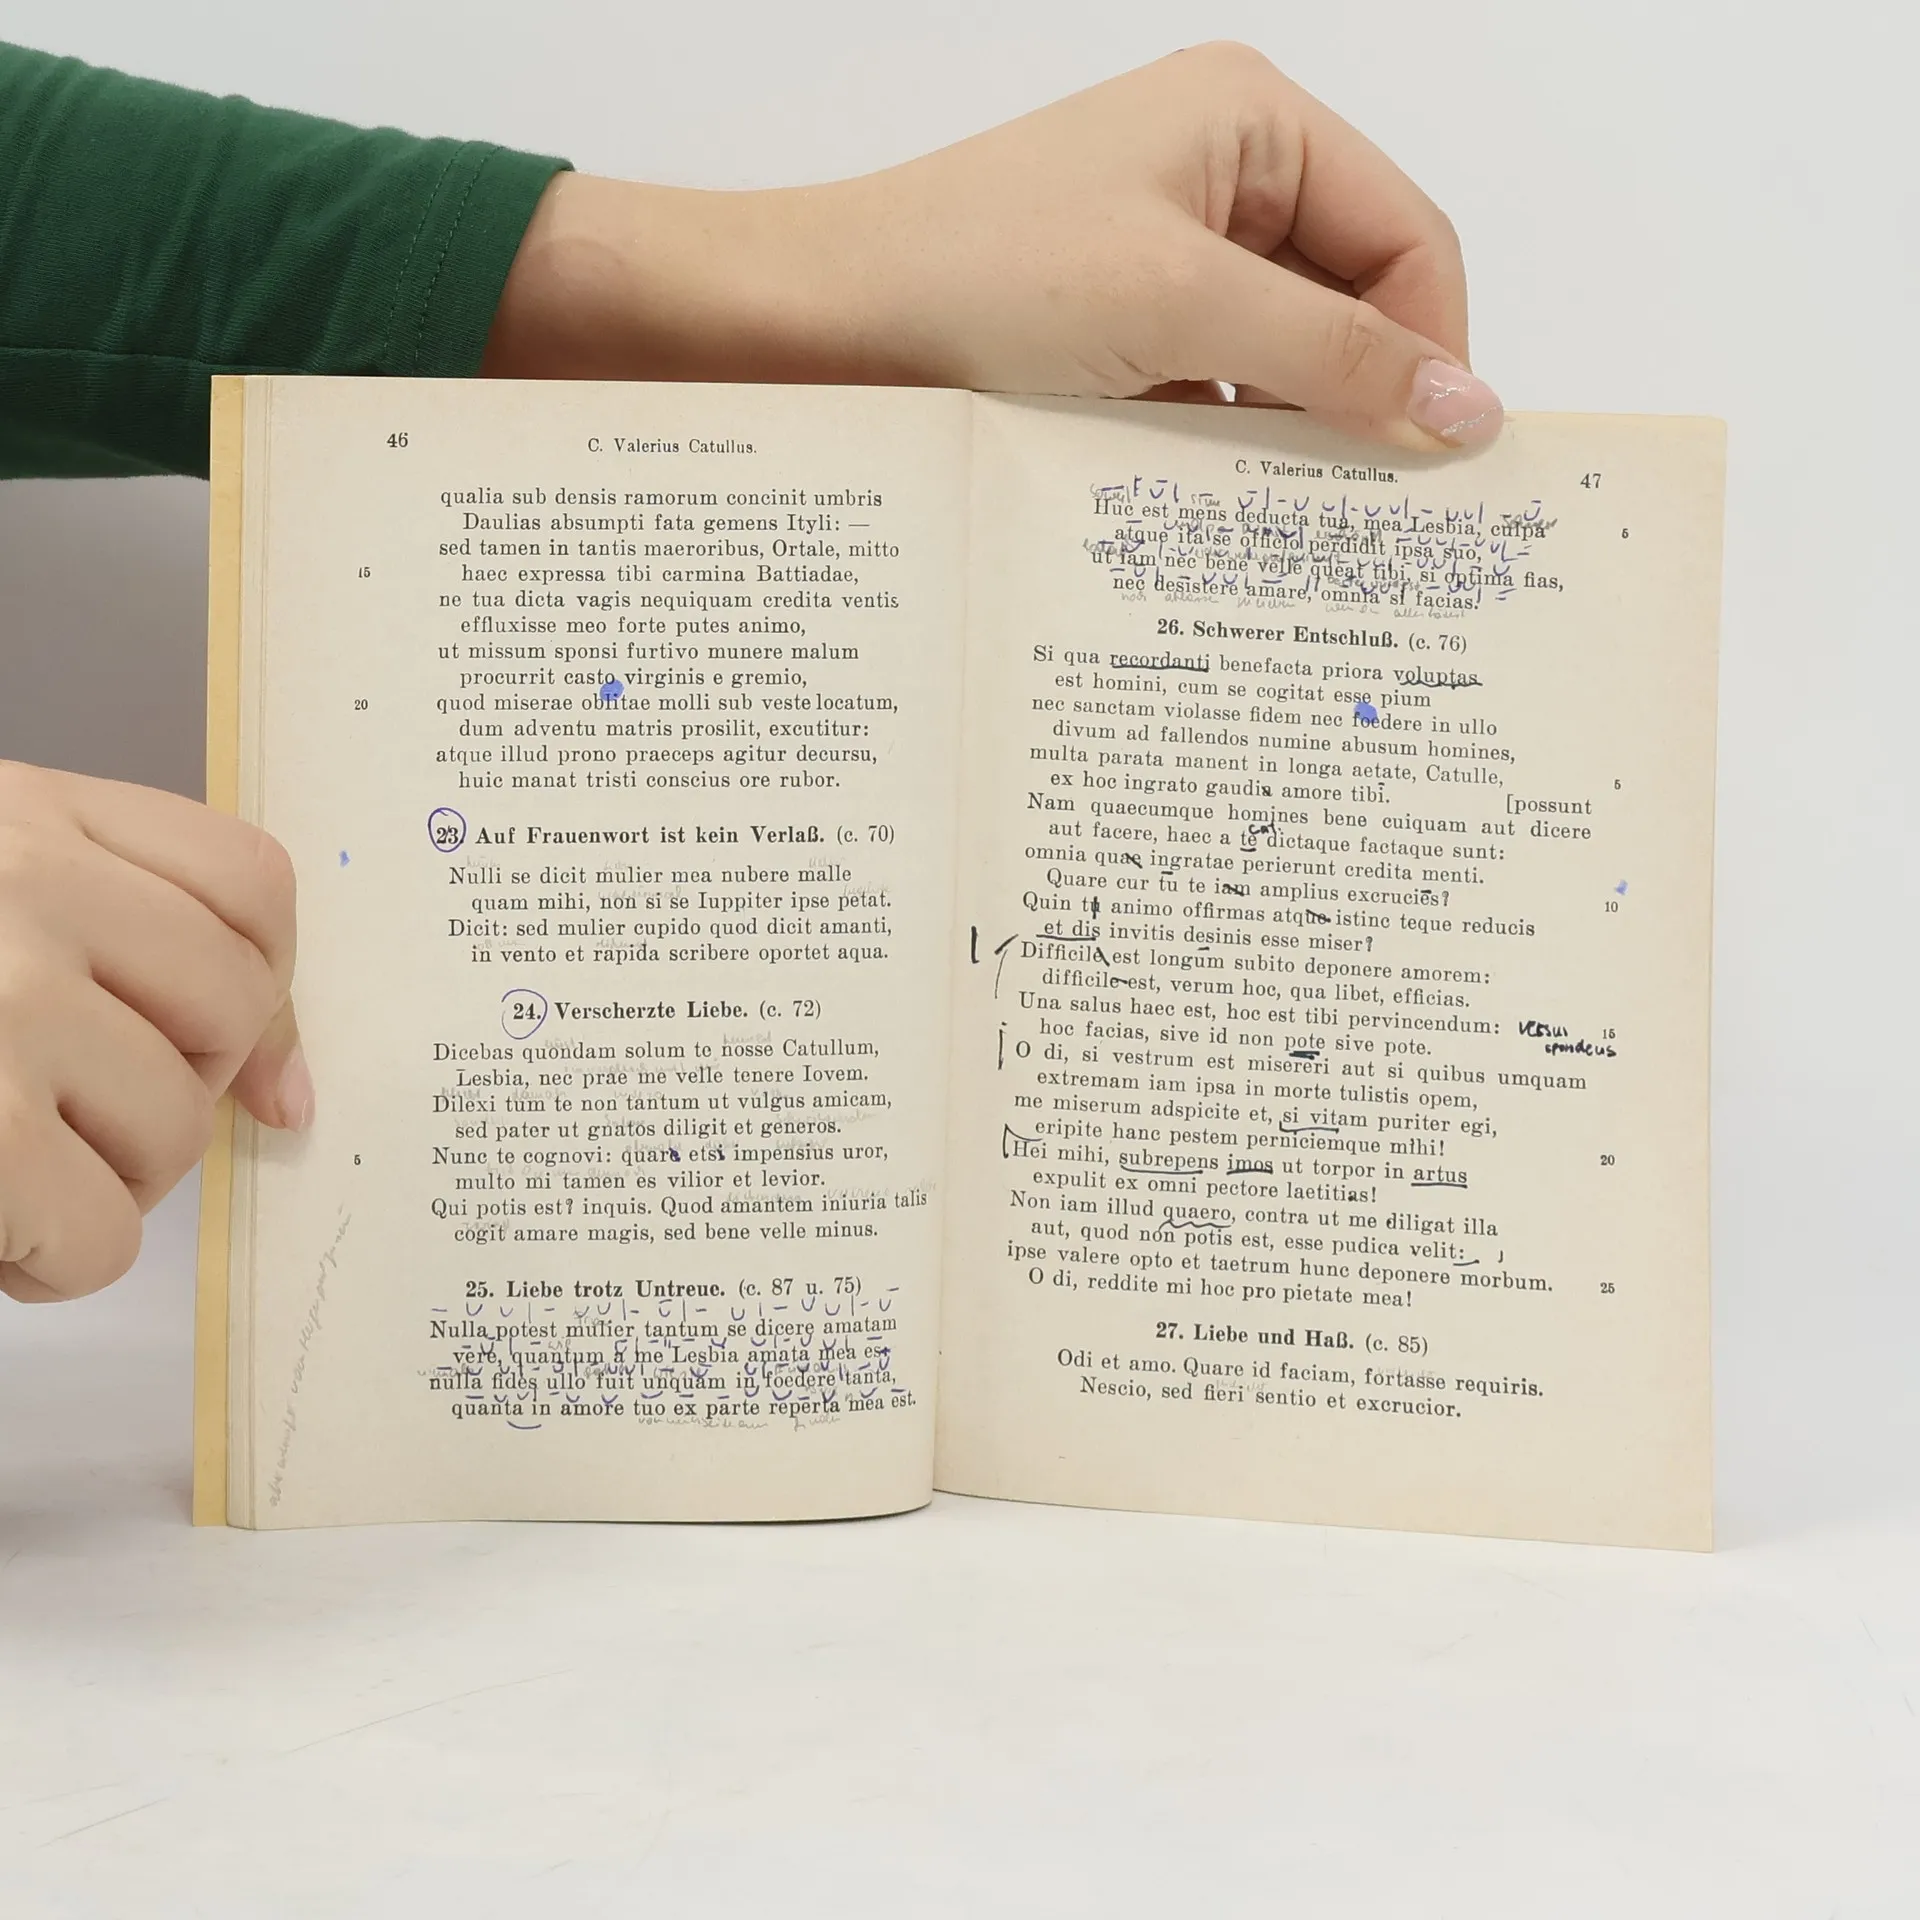 46
C. Valerius Catullus.
qualia sub densis ramorum concinit umbris
Daulias absumpti fata gemens Ityli: —
sed tamen in tantis maeroribus, Ortale, mitto
15 haec expressa tibi carmina Battiadae,
ne tua dicta vagis nequiquam credita ventis
effluxisse meo forte putes animo,
ut missum sponsi furtivo munere malum
procurrit casto virginis e gremio,
20 quod miserae oblitae molli sub veste locatum,
dum adventu matris prosilit, excutitur:
atque illud prono praeceps agitur decursu,
huic manat tristi conscius ore rubor.
23. Auf Frauenwort ist kein Verlaß. (c. 70)
Nulli se dicit mulier mea nubere malle
quam mihi, non si se Iuppiter ipse petat.
Dicit: sed mulier cupido quod dicit amanti,
in vento et rapida scribere oportet aqua.
24. Verscherzte Liebe. (c. 72)
Dicebas quondam solum te nosse Catullum,
Lesbia, nec prae me velle tenere Iovem.
Dilexi tum te non tantum ut vulgus amicam,
sed pater ut gnatos diligit et generos.
5 Nunc te cognovi: quare etsi impensius uror,
multo mi tamen es vilior et levior.
Qui potis est? inquis. Quod amantem iniuria talis
cogit amare magis, sed bene velle minus.
25. Liebe trotz Untreue. (c. 87 u. 75)
Nulla potest mulier tantum se dicere amatam
vere, quantum a me Lesbia amata mea est
nulla fides ullo fuit unquam in foedere tanta,
quanta in amore tuo ex parte reperta mea est.
C. Valerius Catullus.
47
Huc est mens deducta tua, mea Lesbia, culpa 5
atque ita se officio perdidit ipsa suo,
ut iam nec bene velle queat tibi, si optima fias,
nec desistere amare, omnia si facias.
26. Schwerer Entschluß. (c. 76)
Si qua recordanti benefacta priora voluptas
est homini, cum se cogitat esse pium
nec sanctam violasse fidem nec foedere in ullo
divum ad fallendos numine abusum homines,
multa parata manent in longa aetate, Catulle, 5
ex hoc ingrato gaudia amore tibi.
[possunt
Nam quaecumque homines bene cuiquam aut dicere
aut facere, haec a te dictaque factaque sunt:
omnia quae ingratae perierunt credita menti.
Quare cur tu te iam amplius excrucies? 10
Quin tu animo offirmas atque istinc teque reducis
et dis invitis desinis esse miser?
Difficile est longum subito deponere amorem:
difficile est, verum hoc, qua libet, efficias.
Una salus haec est, hoc est tibi pervincendum: versus 15
spondeus
hoc facias, sive id non pote sive pote.
O di, si vestrum est misereri aut si quibus umquam
extremam iam ipsa in morte tulistis opem,
me miserum adspicite et, si vitam puriter egi,
eripite hanc pestem perniciemque mihi! 20
Hei mihi, subrepens imos ut torpor in artus
expulit ex omni pectore laetitias!
Non iam illud quaero, contra ut me diligat illa
aut, quod non potis est, esse pudica velit:
ipse valere opto et taetrum hunc deponere morbum. 25
O di, reddite mi hoc pro pietate mea!
27. Liebe und Haß. (c. 85)
Odi et amo. Quare id faciam, fortasse requiris.
Nescio, sed fieri sentio et excrucior.